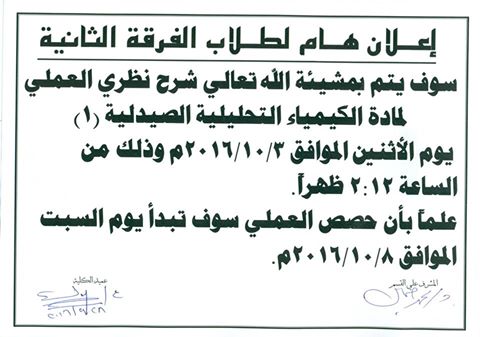 إعلان هام لطلاب الفرقة الثانية
سوف يتم بمشيئة الله تعالي شرح نظري العملي
لمادة الكيمياء التحليلية الصيدلية (١)
يوم الأثنين الموافق ٢٠١٦/١٠/٣م وذلك من
الساعة ٢:١٢ ظهراً.
علماً بأن حصص العملي سوف تبدأ يوم السبت
الموافق ٢٠١٦/١٠/٨م.
المشرف علي القسم
عميد الكلية